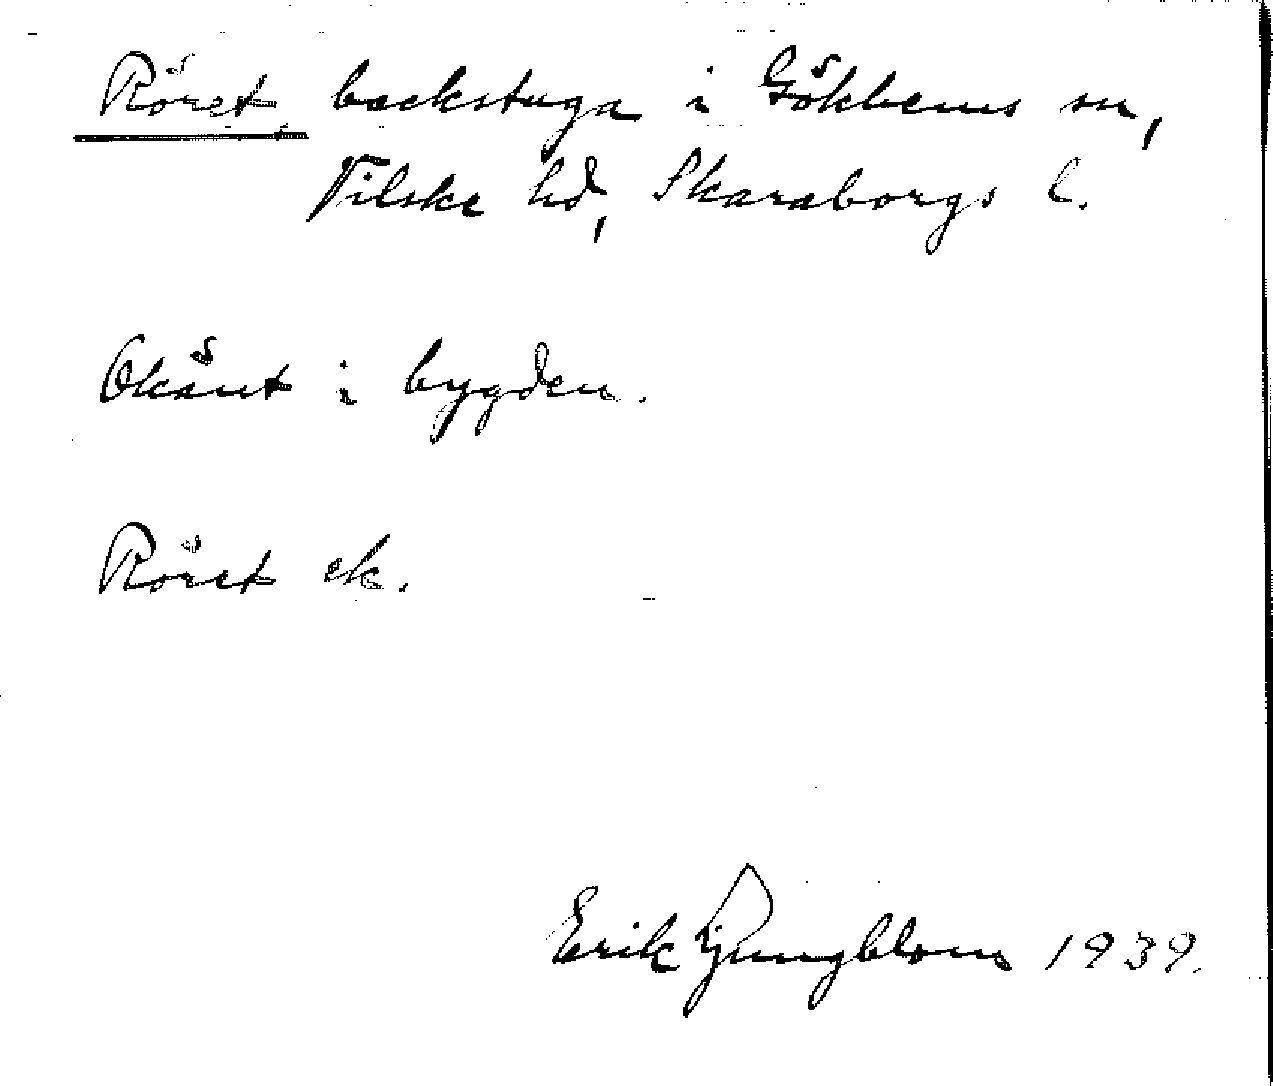 Röret, backstuga i Gökhems sn,
Vilske hd, Skaraborgs l.
Okänt i bygden.
Röret ek.
Erik Ljungblom 1939.